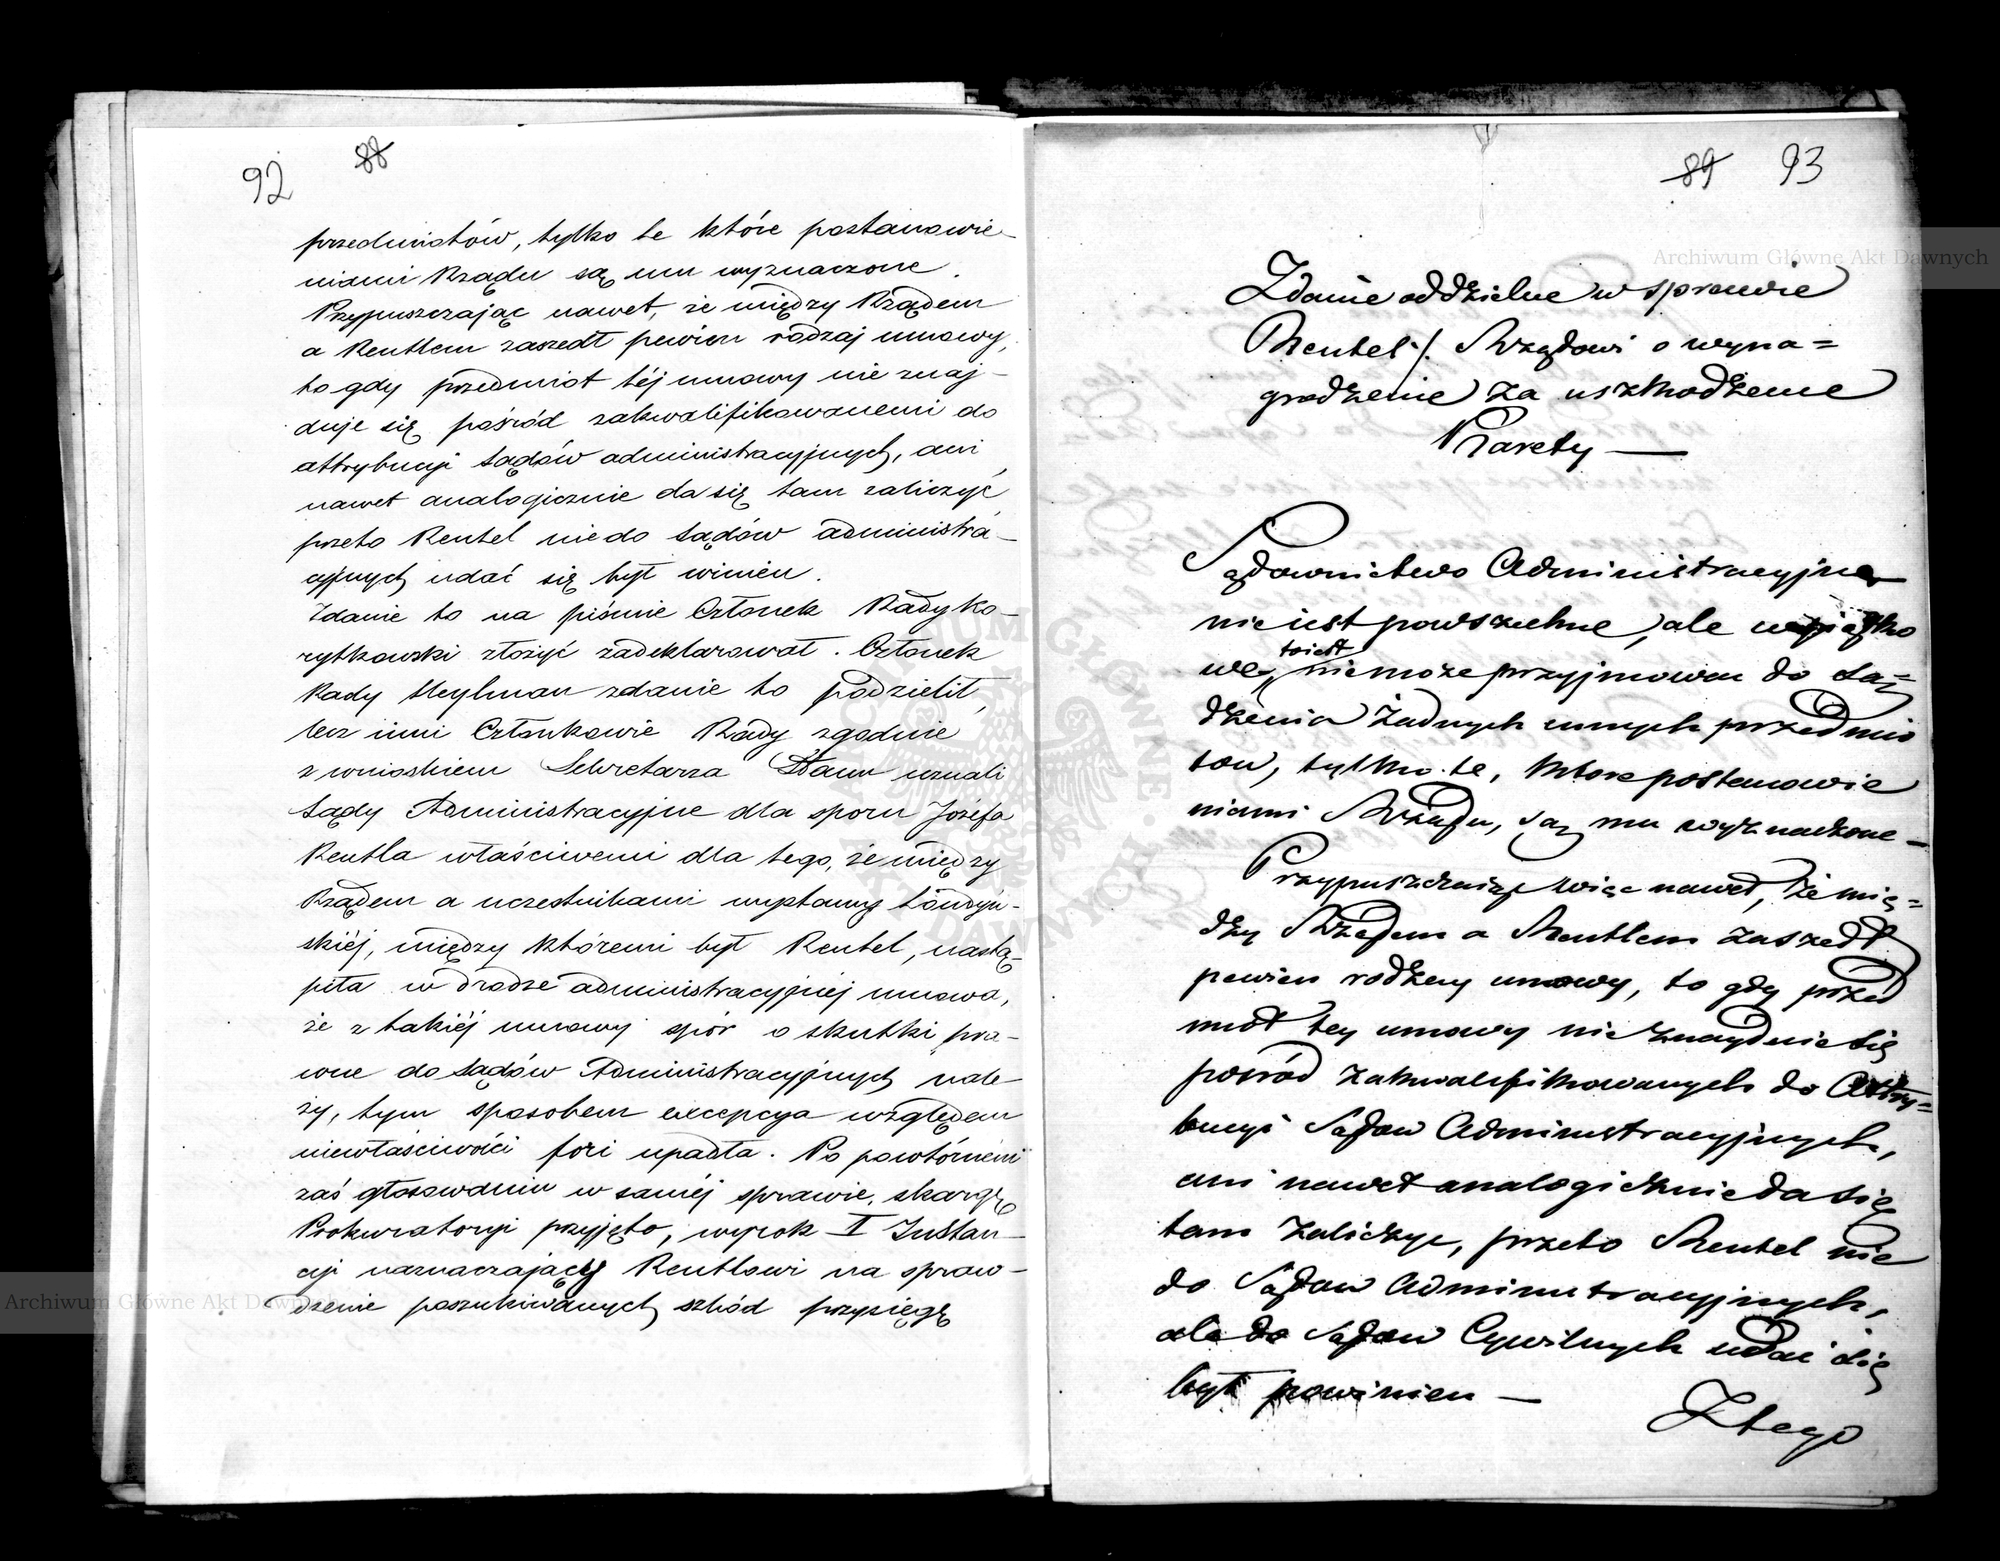 92 88
przedmiotów, tylko te które postanowie-
niami Rządu są mu wyznaczone.
Przypuszczając nawet, że między Rządem
a Rentlem zaszedł pewien rodzaj umowy,
to gdy przedmiot téj umowy nie znaj-
duje się pośród zakwalifikowanemi do
attrybucji sądów administracyjnych, ani
nawet analogicznie da się tam zaliczyć
przeto Rentel nie do sądów administra-
cyjnych udać się był winien.
Zdanie to na piśmie Członek Rady Ko-
rytkowski złożyć zadeklarował. Członek
Rady Heylman zdanie to podzielił,
lecz inni Członkowie Rady zgodnie
z wnioskiem Sekretarza Stanu uznali
sądy Administracyjne dla sporu Józefa
Rentla właściwemi dla tego, że między
Rządem a uczestnikami wystawy Londyń-
skiéj, między któremi był Rentel, nastą-
piła w drodze administracyjnéj umowa,
że z takiéj umowy spór o skutki pra-
wne do sądów Administracyjnych nale-
ży, tym sposobem excepcya względem
niewłaściwości fori upadła. Po powtórném
zaś głosowaniu w saméj sprawie, skargę
Prokuratoryi przyjęto, wyrok I Instan-
cji naznaczający Rentlowi na spraw-
dzenie poszukiwanych szkód przysięgę
89 93
Zdanie oddzielne w sprawie
Rentel /. Rządowi o wyna=
grodzenie za uszkodzenie
Karety —
Sądownictwo Administracyjne
nie iest powszechne, ale wyiątko
we, toiest nie może przyjmować do są=
dzenia żadnych innych przedmio
tow, tylko te, ktore postanowie
niami Rządu, są mu wyznaczone —
Przypuszczaiąc więc nawet, że mię=
dzy Rządem a Rentlem zaszedł
pewien rodzay umowy, to gdy przed
miot tey umowy nie znayduie się
posród zakwalifikowanych do Attry=
bucyi Sądow Administracyjnych,
ani nawet analogicznie da się
tam zaliczyc, przeto Rentel nie
do Sądow Administracyjnych,
ale do Sądow Cywilnych udać się
był powinien —
Z tego
Archiwum Główne Akt Dawnych
Archiwum Główne Akt Dawnych
ARCHIWUM GŁÓWNE AKT DAWNYCH